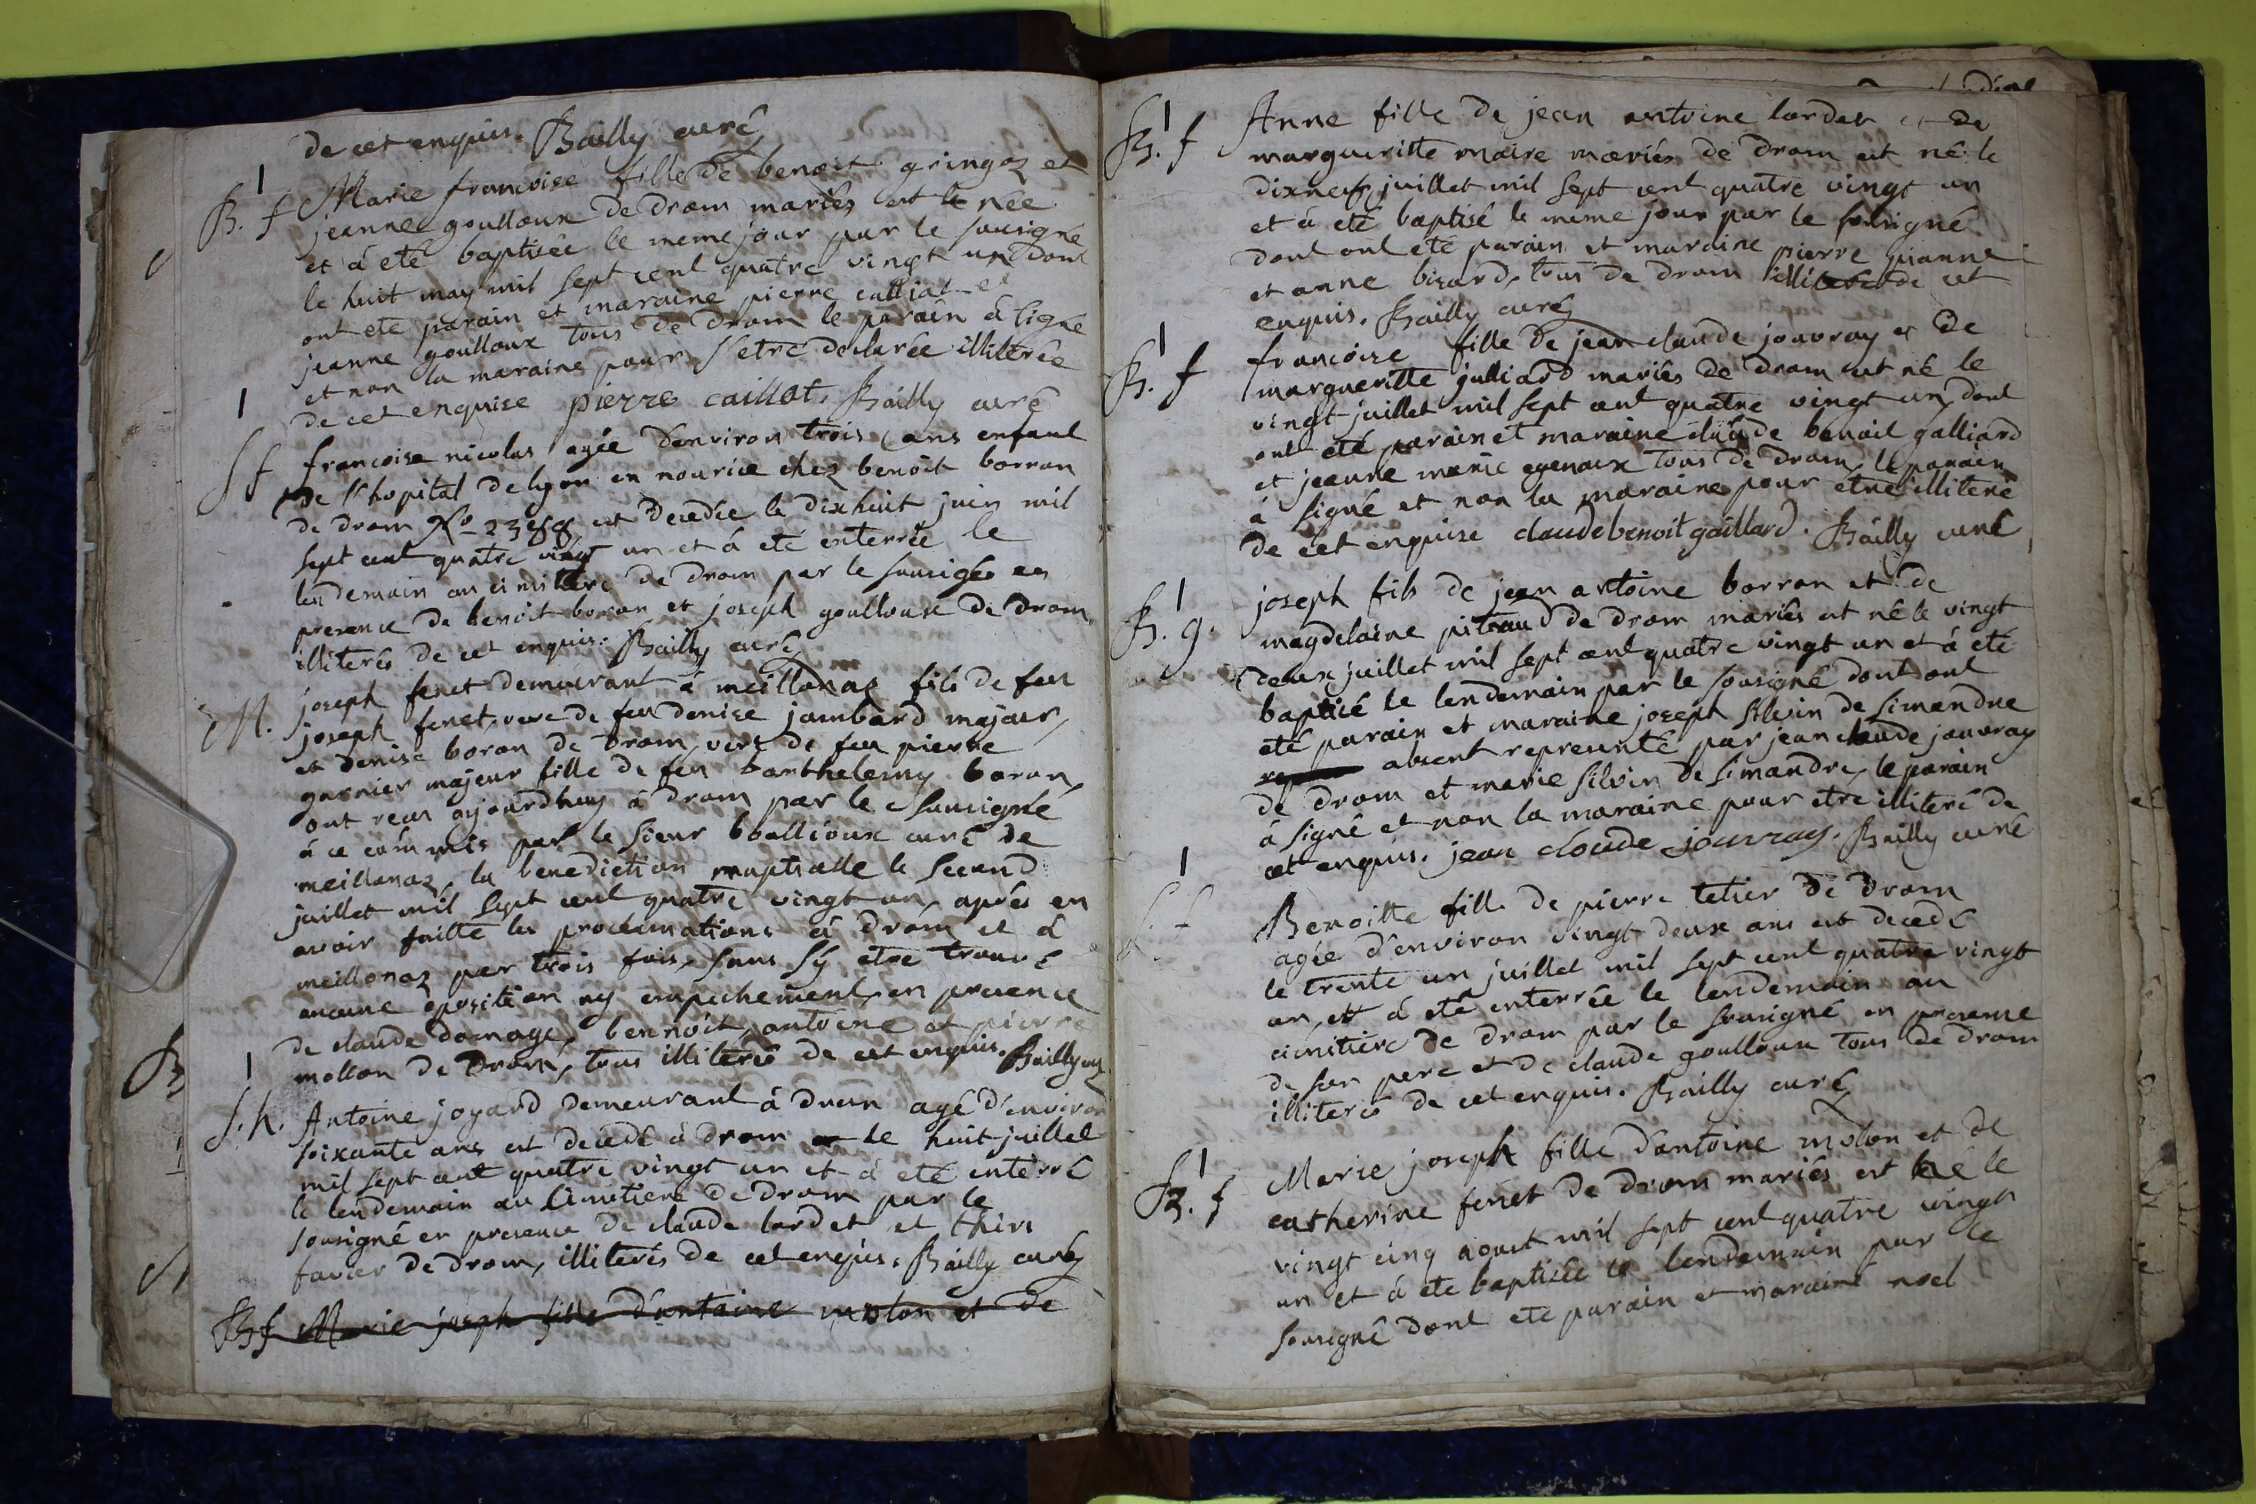 de cet enquis. Bailly curé
1
B. f Marie francoise fille de benoit gringoz et
jeanne goulloux de drom mariés est le née
et à eté baptisée le meme jour par le sousigné
le huit may mil sept cent quatre vingt un dont
ont eté parain et maraine pierre calliat et
jeanne goulloux tous de drom le parain à signé
et non la maraine pour s'etre declarée illiterée
de cet enquise pierre caillat. Bailly curé
1
S f francoise nicolas agée d'environ trois ans enfant
de l'hopital de lyon en nourice chez benoit borron
de drom No est decedée le dixhuit juin mil
sept cent quatre vingt un et à eté enterrée le
lendemain au cimitiere de drom par le sousigné en
presence de benoit boron et joseph goulloux de drom
illiterés de cet enquis. Bailly curé
M. joseph fenet demeurant à meillonaz fils de feu
joseph fenet, veve de feu denise jambard majeur,
et denise boron de drom, veve de feu pierre
garnier majeur fille de feu barthelemy boron,
ont recu aujourdhuy à drom par le sousigné
à ce commis par le sieur boallioux curé de
meillonaz, la benediction nuptialle le second
juillet mil sept cent quatre vingt un, aprés en
avoir faitte les proclamations à drom et à
meillonaz par trois fois, sans s'y etre trouvé
aucune oposition ny empechement, en presence
de claude domage, bennoit, antoine et pierre
mollon de drom, tous illiterés de cet enquis. Bailly curé
1
S. h. Antoine joyard demeurant à drom agé d'environ
soixante ans est decedé à drom le huit juillet
mil sept cent quatre vingt un et à eté enterré
le lendemain au cimitiere de drom par le
sousigné en presence de claude lardet et thivi
favier de drom, illiterés de cet enquis. Bailly curé
B f Marie joseph fille d'antoine molon et de
1
B. f Anne fille de jean antoine lardet et de
margueritte maire mariés de drom est né le
dixneuf juillet mil sept cent quatre vingt un
et à eté baptisé le meme jour par le sousigné
dont ont eté parain et maraine pierre pianne
et anne bizard, tous de drom illiteré de cet
enquis. Bailly curé
1
B. f francoise fille de jean claude jouvray et de
margueritte julliard mariés de drom est né le
vingt juillet mil sept cent quatre vingt un, dont
ont eté parain et maraine claude benoit galliard
et jeanne marie egenoux tous de drom, le parain
à signé et non la maraine pour etre illiteré
de cet enquise claude benoit gaillard. Bailly curé
1
B. g. joseph fils de jean antoine borron et de
magdelaine pitraud de drom mariés est né le vingt
deux juillet mil sept cent quatre vingt un et à eté
baptisé le lendemain par le sousigné dont ont
eté parain et maraine joseph silvin de simandre
absent representé par jean claude jouvray
de drom et marie silvin de simandre, le parain
à signé et non la maraine pour etre illiteré de
cet enquis. jean cloude jouvray. Bailly curé
1
S. f Benoitte fille de pierre tetier de drom
agée d'environ vingt deux ans est decedé
le trente un juillet mil sept cent quatre vingt
un, et à eté enterrée le lendemain au
cimitiere de drom par le sousigné en presence
de son pere et de claude goulloux tous de drom
illiterés de cet enquis. Bailly curé
1
B. f Marie joseph fille d'antoine molon et de
catherine fenet de drom mariés est né le
vingt cinq aoust mil sept cent quatre vingt
un et à eté baptisée le lendemain par le
sousigné dont eté parain et maraine noel